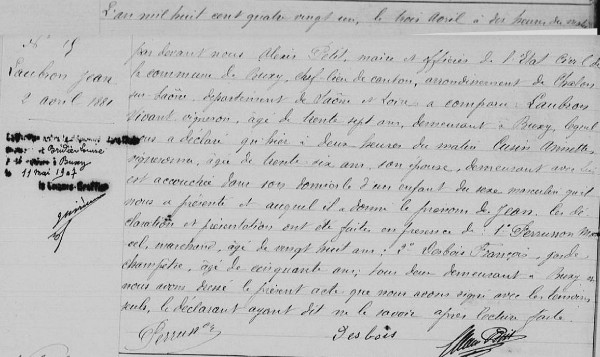 L'an mil huit cent quatre vingt un, le trois avril à dix heures du matin
N° 15
Laubron Jean
2 avril 1881
par devant nous Alexis Petit, maire et officier de l'Etat Civil de
la commune de Buxy, chef lieu de canton, arrondissement de Chalon
sur Saône, département de Saône et Loire a comparu Laubron
vigneron, âgé de trente sept ans, demeurant à Buxy, lequel
nous a déclaré qu'hier à deux heures du matin Cusin Annette
vigneronne, âgée de trente six ans, son épouse, demeurant avec lui
est accouchée dans son domicile d'un enfant du sexe masculin qu'il
nous a présenté et auquel il a donné le prénom de Jean. Les dé
claration et présentation ont été faites en présence de 1° Perrusson
marchand, âgé de vingt huit ans; 2° Desbois François, garde
champêtre, âgé de cinquante ans; tous deux demeurant à Buxy
nous avons dressé le présent acte que nous avons signé avec les témoins
seuls, le déclarant ayant dit ne le savoir après lecture faite
à Buxy
le 11 mai 1907
le Commis-Greffier
Desbois